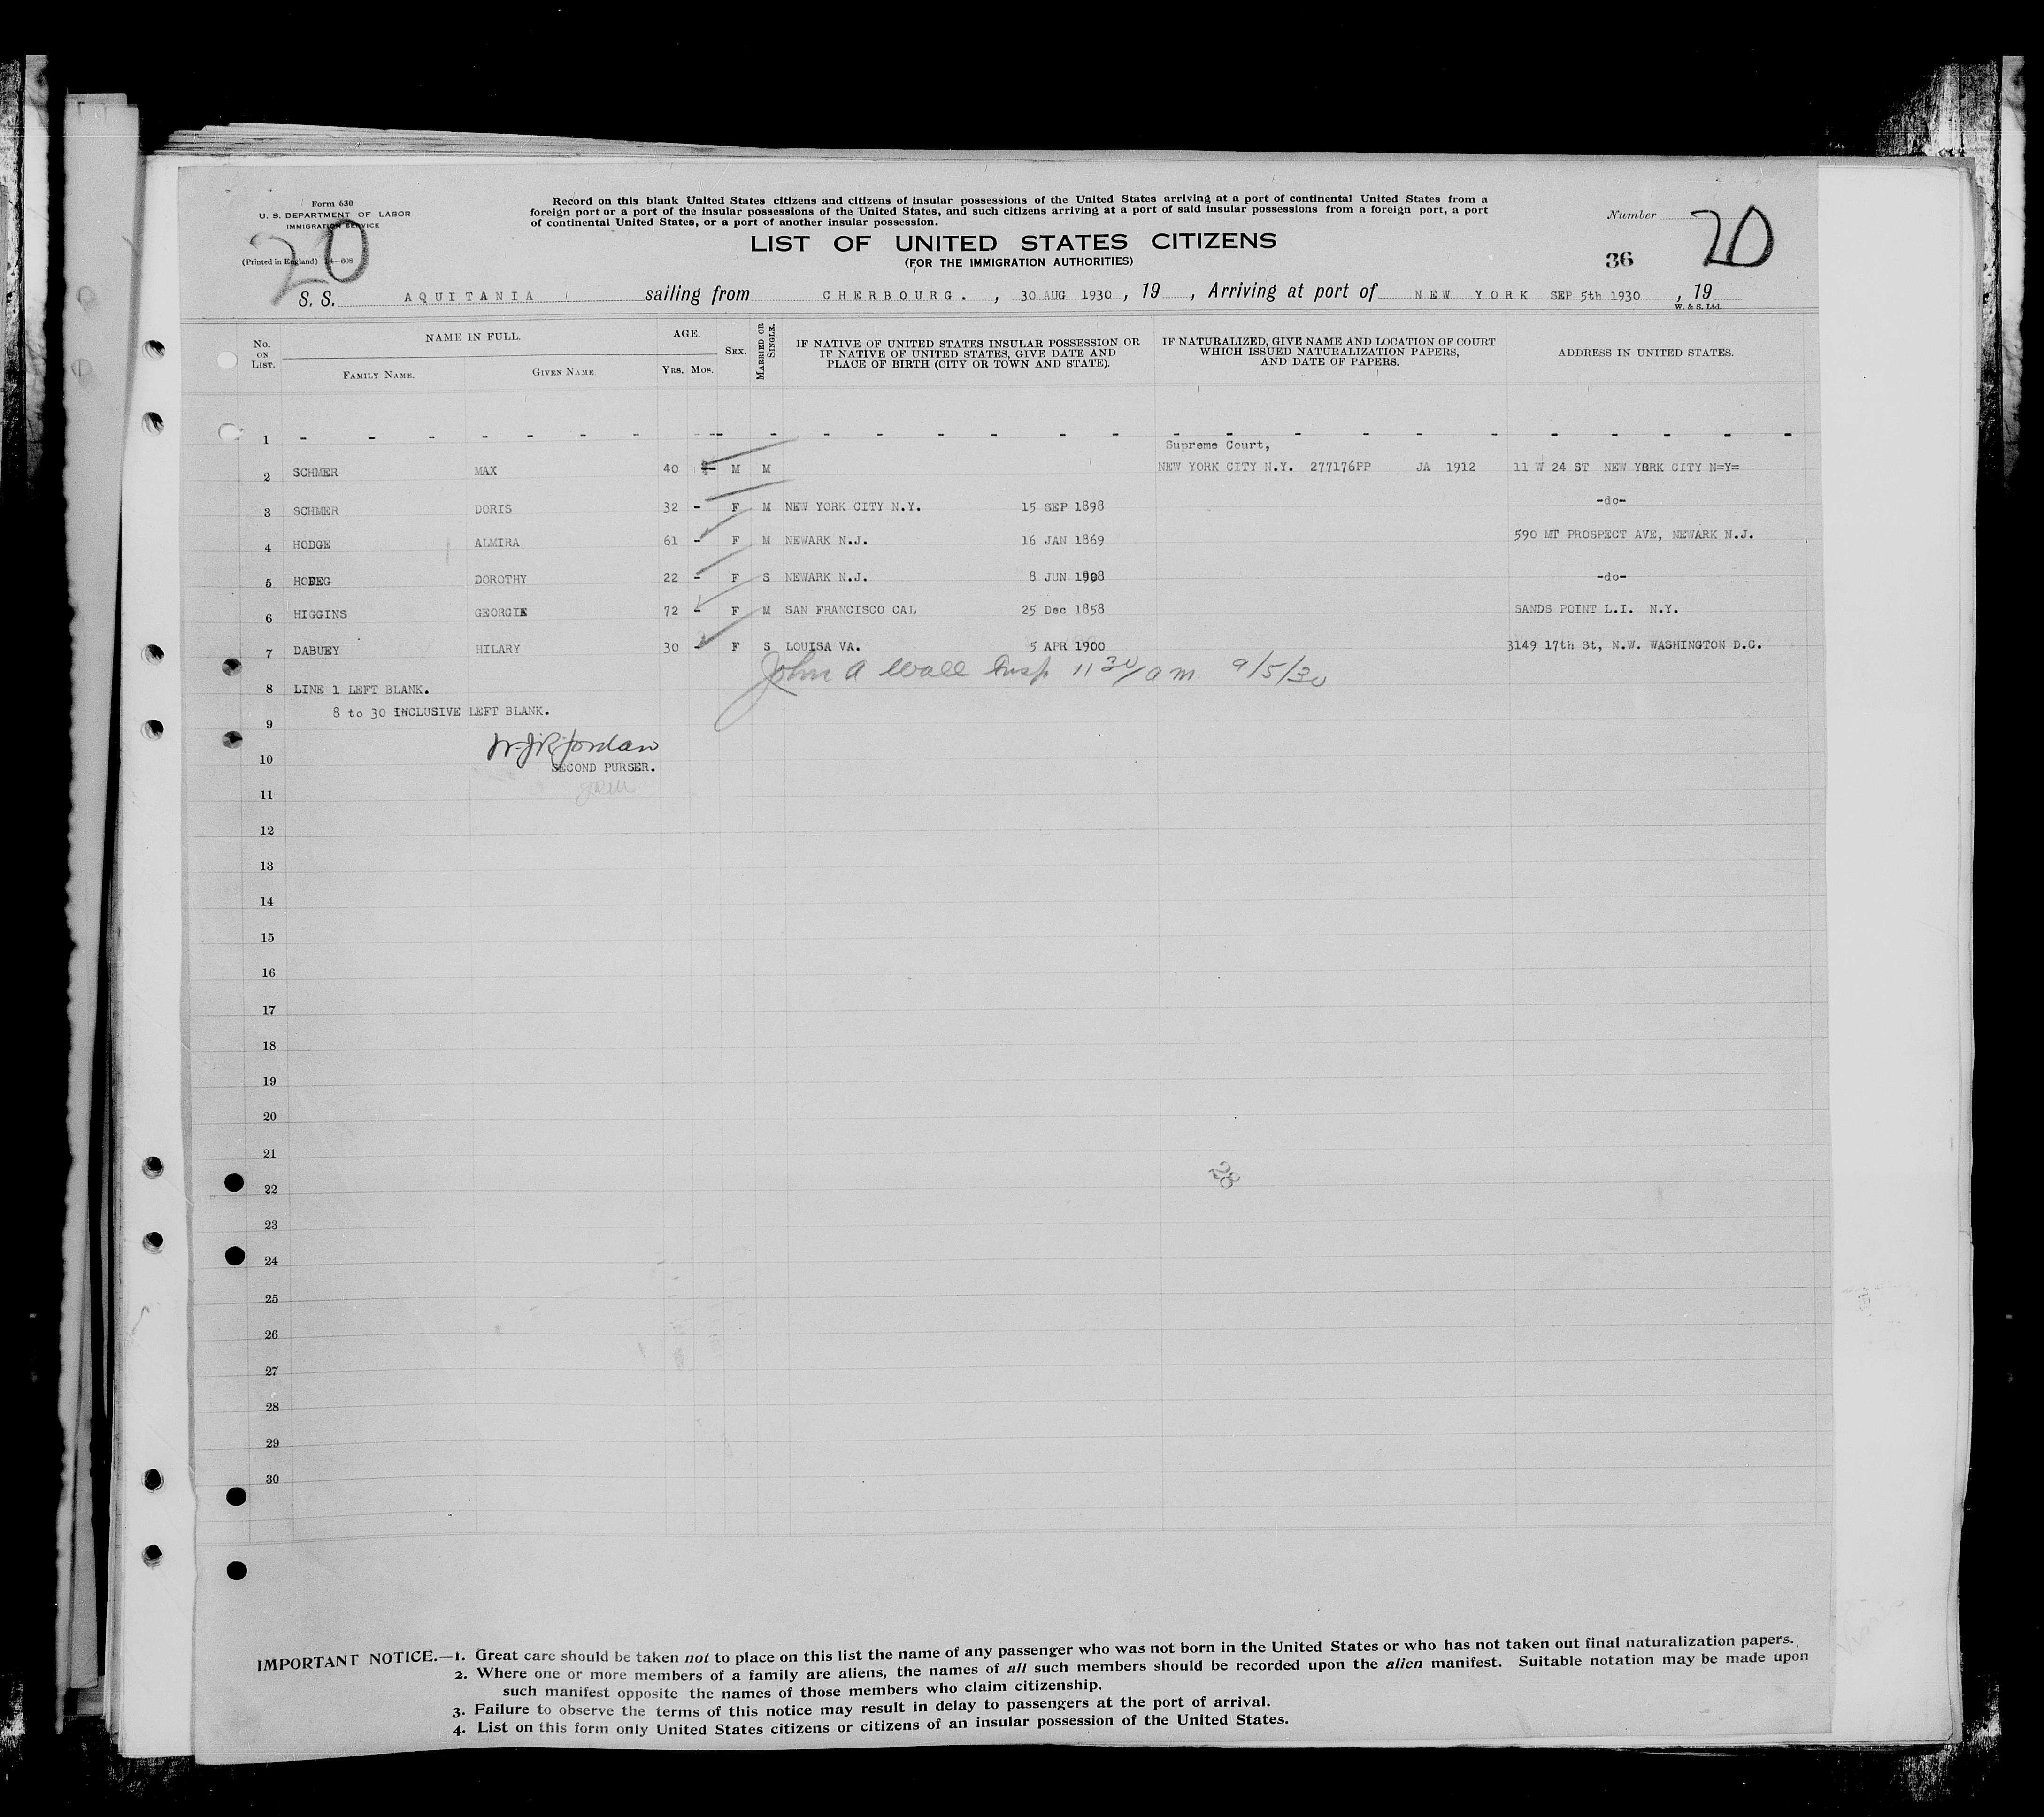 Form 630
U. S. DEPARTMENT OF LABOR
IMMIGRATION SERVICE
(Printed in England) 24—608
20
Record on this blank United States citizens and citizens of insular possessions of the United States arriving at a port of continental United States from a
foreign port or a port of the insular possessions of the United States, and such citizens arriving at a port of said insular possessions from a foreign port, a port
of continental United States, or a port of another insular possession.
Number 20
LIST OF UNITED STATES CITIZENS
(FOR THE IMMIGRATION AUTHORITIES)
36
S. S. AQUITANIA sailing from CHERBOURG. , 30 AUG 1930 , 19 , Arriving at port of NEW YORK SEP 5th 1930 , 19
W. & S. Ltd.
No. ON LIST. NAME IN FULL. FAMILY NAME. GIVEN NAME AGE. YRS. MOS. SEX. MARRIED OR SINGLE. IF NATIVE OF UNITED STATES INSULAR POSSESSION OR IF NATIVE OF UNITED STATES, GIVE DATE AND PLACE OF BIRTH (CITY OR TOWN AND STATE). IF NATURALIZED, GIVE NAME AND LOCATION OF COURT WHICH ISSUED NATURALIZATION PAPERS, AND DATE OF PAPERS. ADDRESS IN UNITED STATES.
1 - - - - - - - - - - - - - - - - - - - - - - - - -
Supreme Court,
2 SCHMER MAX 40 M M NEW YORK CITY N.Y. 277176PP JA 1912 11 W 24 ST NEW YORK CITY N=Y=
3 SCHMER DORIS 32 - F M NEW YORK CITY N.Y. 15 SEP 1898 -do-
4 HODGE ALMIRA 61 - F M NEWARK N.J. 16 JAN 1869 590 MT PROSPECT AVE, NEWARK N.J.
5 DOROTHY 22 - F S NEWARK N.J. 8 JUN 1908 -do-
6 HIGGINS GEORGIE 72 - F M SAN FRANCISCO CAL 25 Dec 1858 SANDS POINT L.I. N.Y.
7 DABUEY HILARY 30 - F S LOUISA VA. 5 APR 1900 3149 17th St, N.W. WASHINGTON D.C.
John A Wall Insp 11 30/am. 9/5/30
8 LINE 1 LEFT BLANK.
8 to 30 INCLUSIVE LEFT BLANK.
9
10
Jordan
SECOND PURSER.
11
12
13
14
15
16
17
18
19
20
21
28
22
23
24
25
26
27
28
29
30
IMPORTANT NOTICE.—1. Great care should be taken not to place on this list the name of any passenger who was not born in the United States or who has not taken out final naturalization papers.
2. Where one or more members of a family are aliens, the names of all such members should be recorded upon the alien manifest. Suitable notation may be made upon
such manifest opposite the names of those members who claim citizenship.
3. Failure to observe the terms of this notice may result in delay to passengers at the port of arrival.
4. List on this form only United States citizens or citizens of an insular possession of the United States.